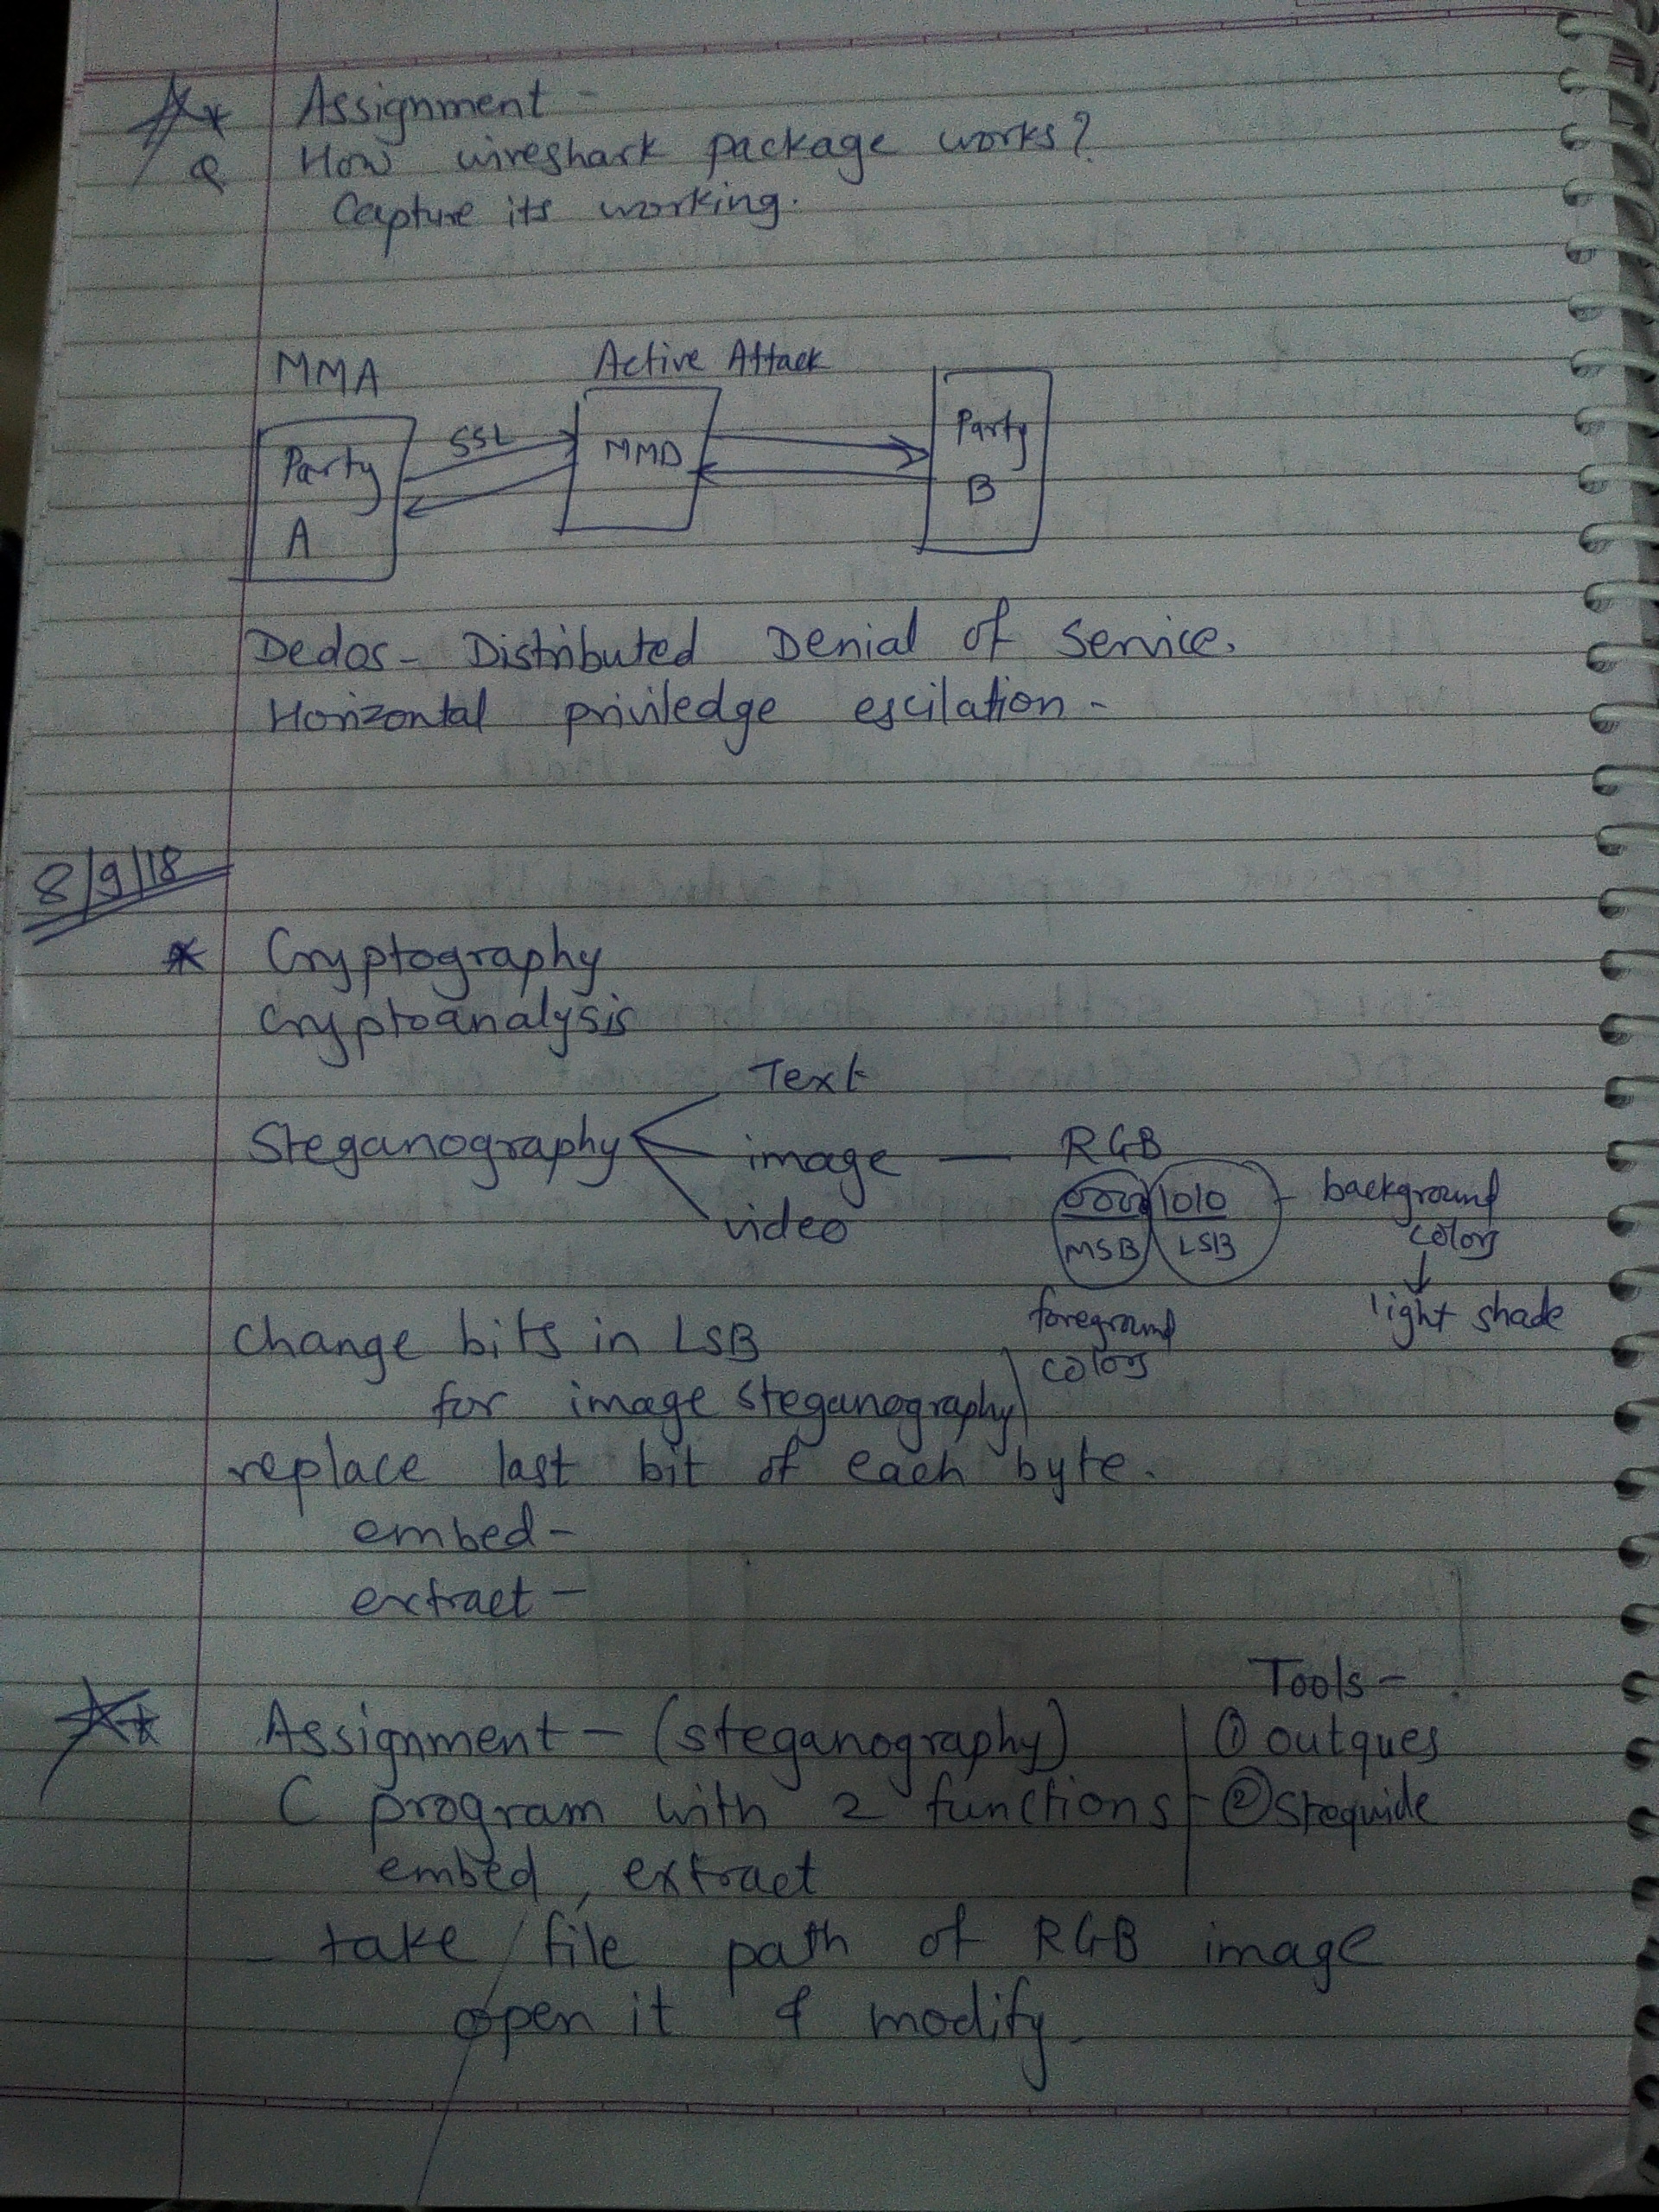 Assignment -
Q How wireshark package works?
Capture its working.
MMA
Active Attack
Party A
SSL
MMD
Party B
Dedos - Distributed Denial of Service.
Horizontal priviledge escilation -
8/9/18
* Cryptography
Cryptoanalysis
Text
Steganography
image — RGB
video
0000 1010
MSB LSB
background colors
light shade
foreground colors
Change bits in LSB
for image steganography
replace last bit of each byte.
embed -
extract -
Tools -
Assignment - (steganography)
① outques
C program with 2 functions
② Steguide
embed, extract
- take file path of RGB image
open it & modify.